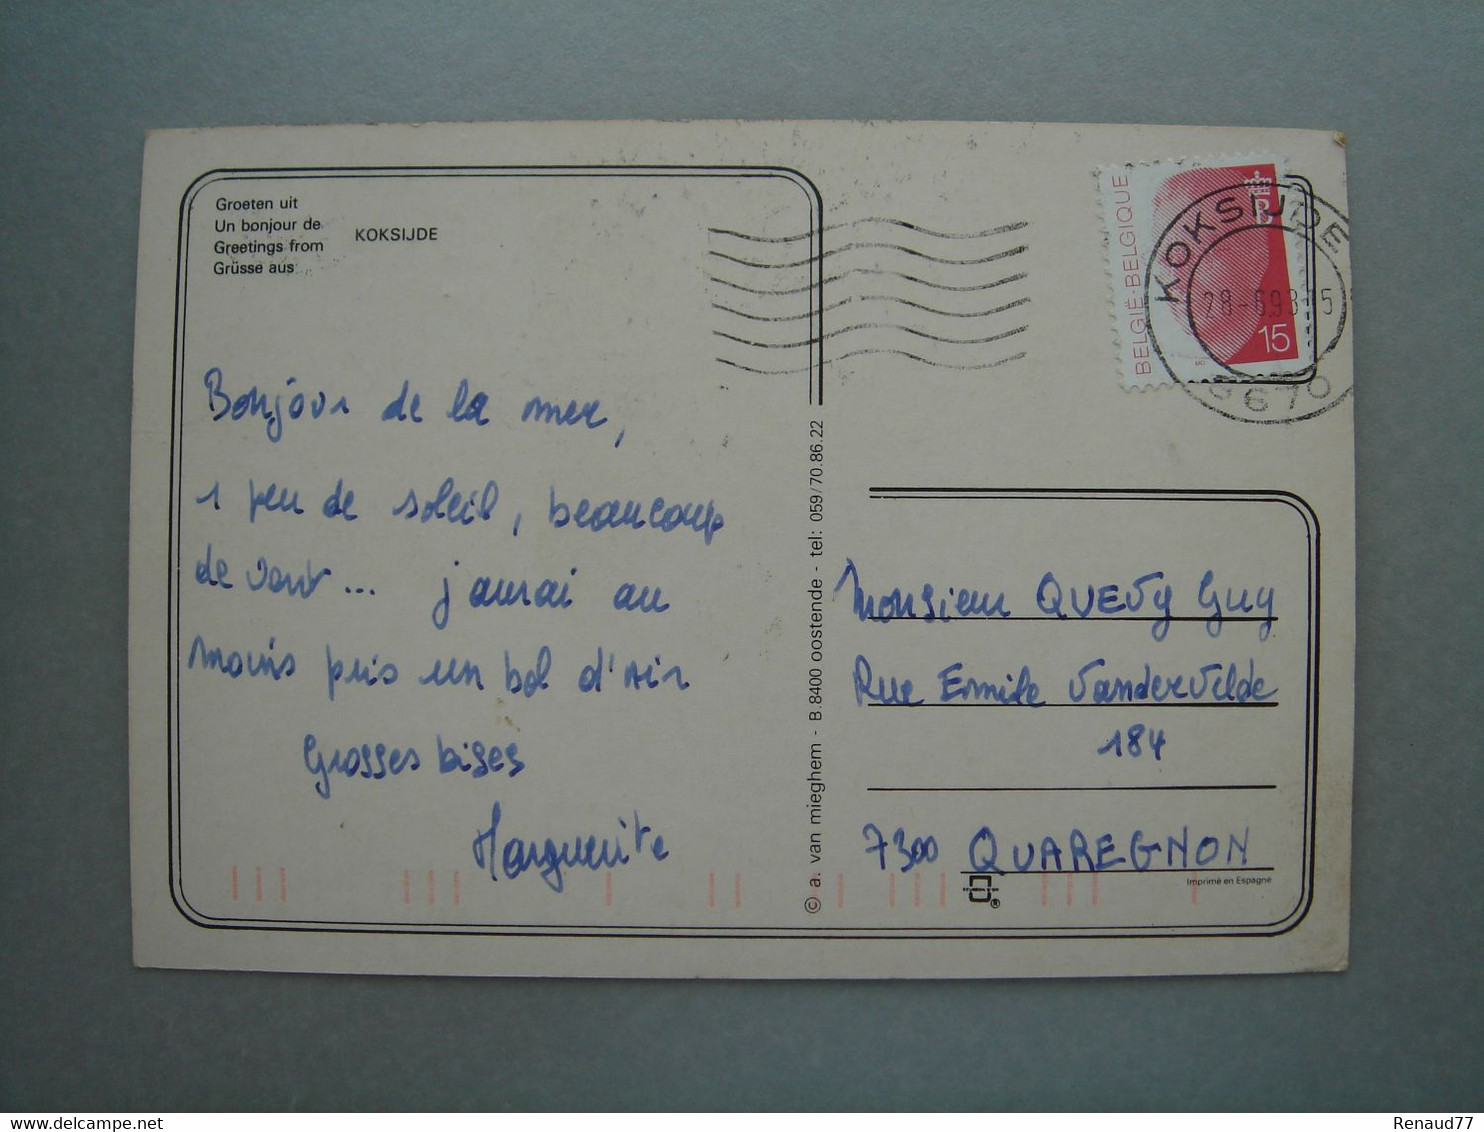 Groeten uit
Un bonjour de
Greetings from
Grüsse aus
KOKSIJDE
Bonjour de la mer,
1 peu de soleil, beaucoup
de vent... j'aurai au
moins pris un bol d'air
Grosses bises
Marguerite
© a. van mieghem - B.8400 oostende - tel: 059/70.86.22
BELGIË-BELGIQUE
B
15
KOKSIJDE
28-6.93-15
8670
Monsieur QUEVY Guy
Rue Emile Vandervelde
184
7300 QUAREGNON
Imprimé en Espagne
®
delcampe.net
Renaud77